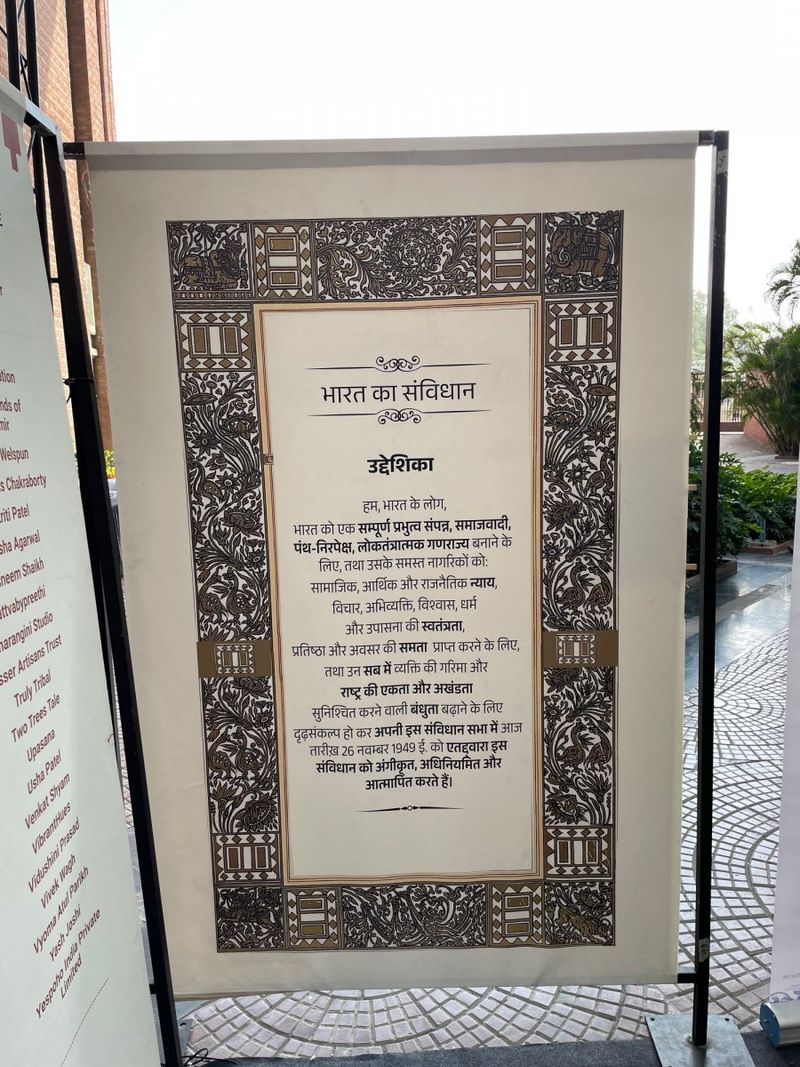 भारत का संविधान
उद्देशिका
हम, भारत के लोग,
भारत को एक सम्पूर्ण प्रभुत्व संपन्न, समाजवादी,
पंथ-निरपेक्ष, लोकतंत्रात्मक गणराज्य बनाने के
लिए, तथा उसके समस्त नागरिकों को:
सामाजिक, आर्थिक और राजनैतिक न्याय,
विचार, अभिव्यक्ति, विश्वास, धर्म
और उपासना की स्वतंत्रता,
प्रतिष्ठा और अवसर की समता प्राप्त करने के लिए,
तथा उन सब में व्यक्ति की गरिमा और
राष्ट्र की एकता और अखंडता
सुनिश्चित करने वाली बंधुता बढ़ाने के लिए
दृढ़संकल्प हो कर अपनी इस संविधान सभा में आज
तारीख़ 26 नवम्बर 1949 ई. को एतद्द्वारा इस
संविधान को अंगीकृत, अधिनियमित और
आत्मार्पित करते हैं।
Welspun
Chakraborty
Patel
Agarwal
Shaikh
Studio
Artisans Trust
Truly Tribal
Two Trees Tale
Upasana
Usha Patel
Venkat Shyam
VibrantHues
Vidushini Prasad
Vivek Wagh
Vyoma Atul Parikh
Yash Joshi
Yespoho India Private
Limited